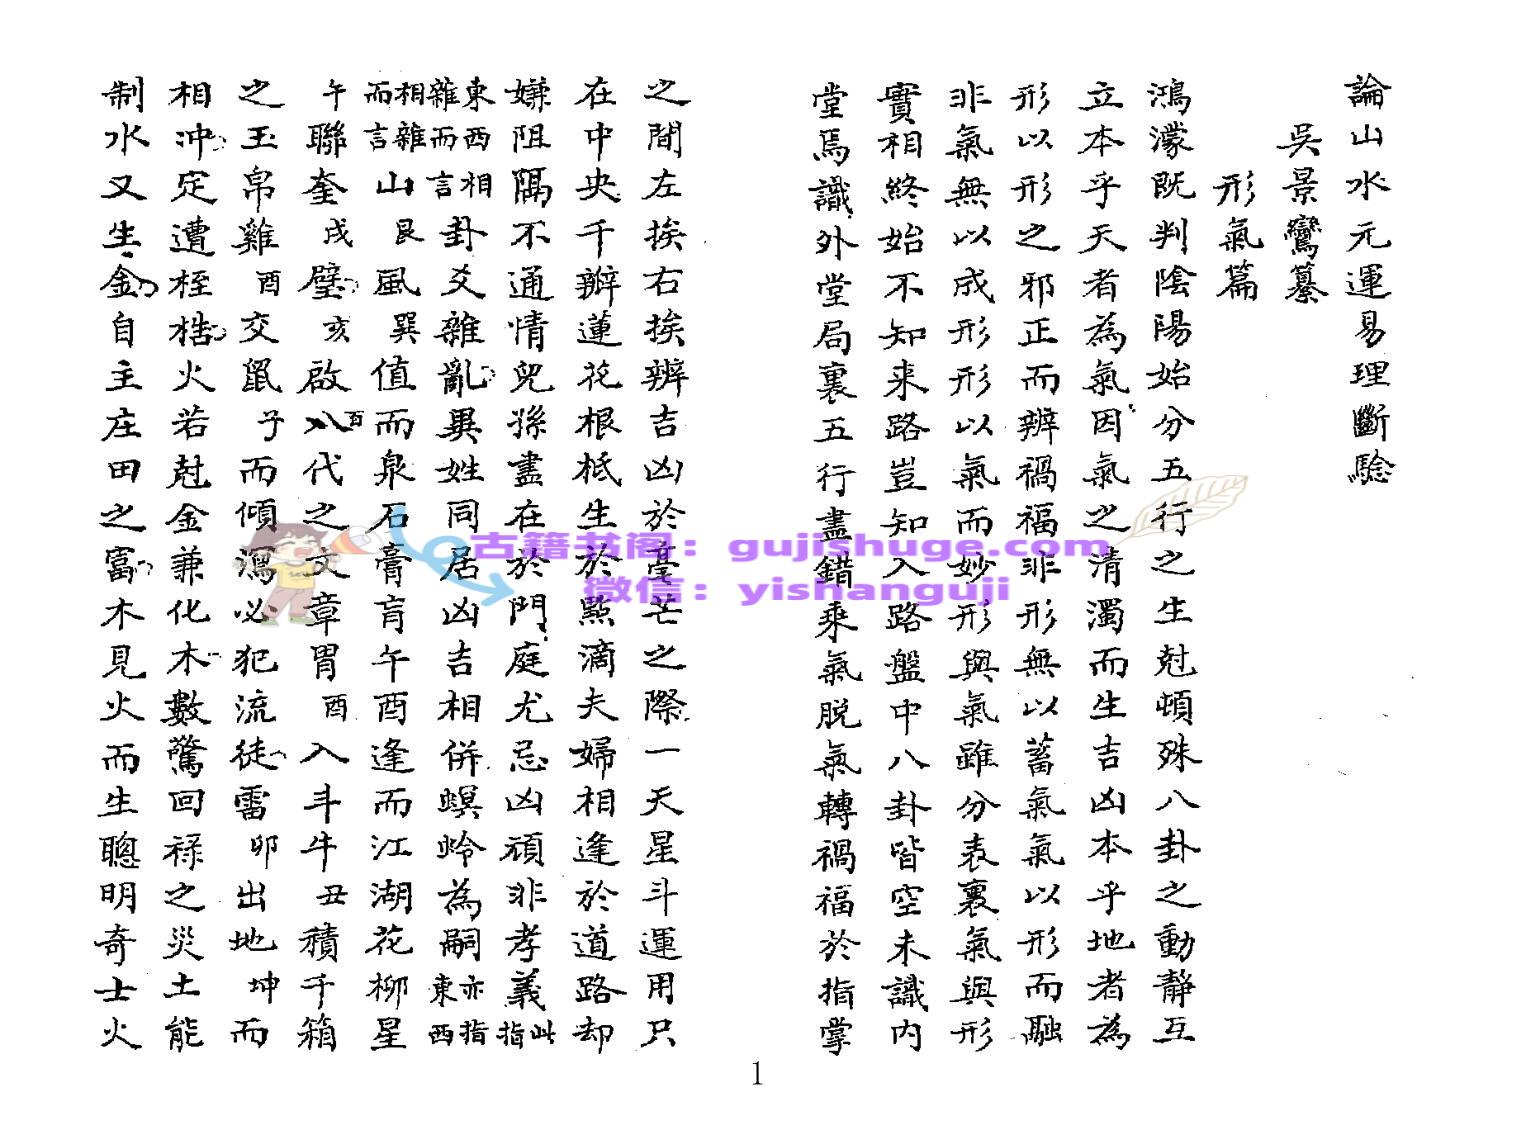 論山水元運易理斷驗
吳景鸞纂
形氣篇
鴻濛既判陰陽始分五行之生尅頓殊八卦之動靜互
立本乎天者為氣因氣之清濁而生吉凶本乎地者為
形以形之邪正而辨禍福非形無以蓄氣氣以形而融
非氣無以成形形以氣而妙形與氣雖分表裏氣與形
實相終始不知来路豈知入路盤中八卦皆空未識內
堂焉識外堂局裏五行盡錯乘氣脱氣轉禍福於指掌
之間左挨右挨辨吉凶於毫芒之際一天星斗運用只
在中央千辦蓮花根柢生於點滴夫婦相逢於道路却
嫌阻隔不通情兒孫盡在於門庭尤忌凶頑非孝義此指
東西相雜而言卦爻雜亂異姓同居凶吉相併螟蛉為嗣亦指東西
相雜而言山艮風巽值而泉石膏肓午酉逢而江湖花柳星
午聯奎戌壁亥啟八代之文章胃酉入斗牛丑積千箱
之玉帛雞酉交鼠子而傾瀉必犯流徒雷卯出地坤而
相冲定遭桎梏火若尅金兼化木數驚回祿之災土能
制水又生金自主庄田之富木見火而生聰明奇士火
1
古籍书阁：gujishuge.com
微信：yishanguji